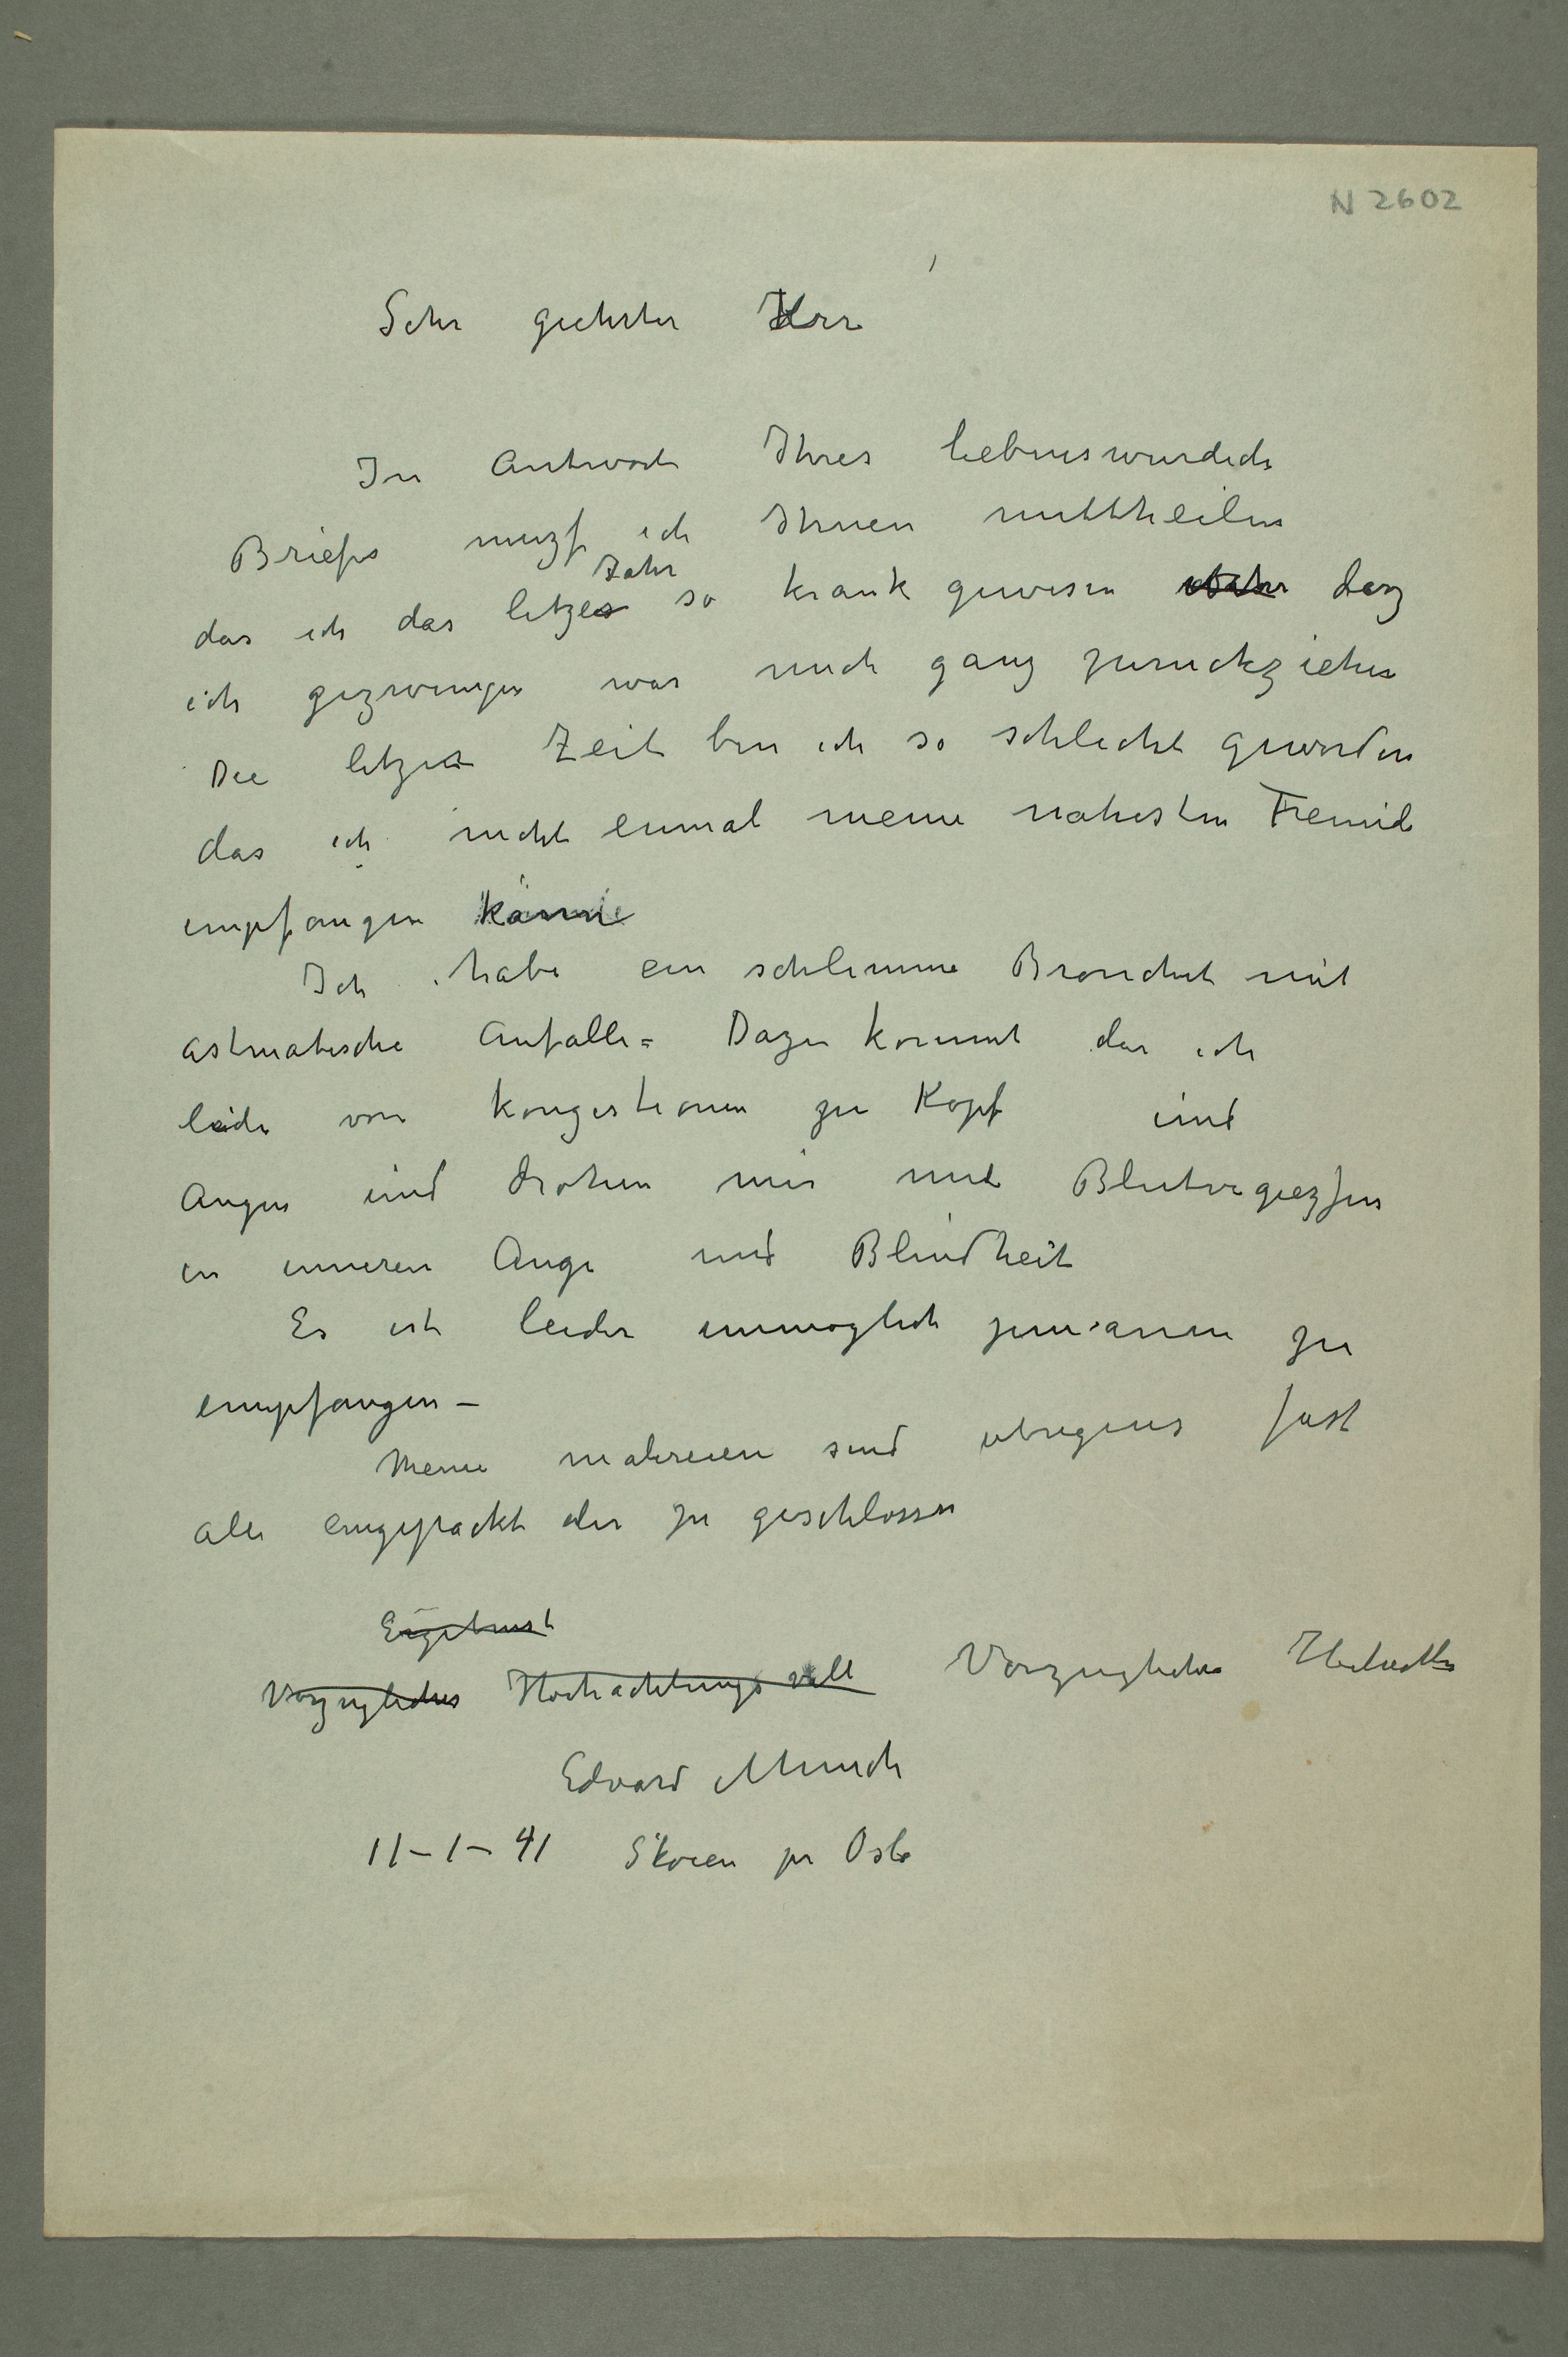 N 2602
Sehr geehrter Herr
In Antwort Ihres liebenswurdich
Briefes muzs ich Ihnen mittheilen
Jahr
das ich das letzes so krank gewesen daz
ich gezwungen war mich ganz zuruckziehen
Die letzen Zeit bin ich so schlecht geworden
das ich nicht einmal meine nahesten Freunde
empfangen kann
Ich habe ein schlimme Bronchit mit
astmatische Anfalle – Dazu kommt das ich
leide von Kongestionen zu Kopf und
Augen und drohen mir mit Blutvergiezsen
in inneren Auge und Blindheit
Es ist leider unmöglich zu
empfangen –
Meine malereien sind ubrigens fast
alle eingepackt oder zu geschlossen
Ergebenst
Vorzugliches Hochachtungsvoll Vorzugliches
Edvard Munch
11-1-41 Skøien pr Oslo